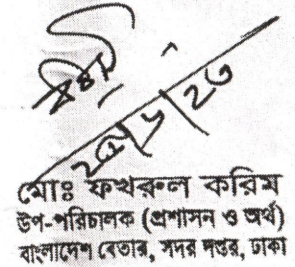 মোঃ ফখরুল করিম
উপ-পরিচালক (প্রশাসন ও অর্থ)
বাংলাদেশ বেতার, সদর দপ্তর, ঢাকা